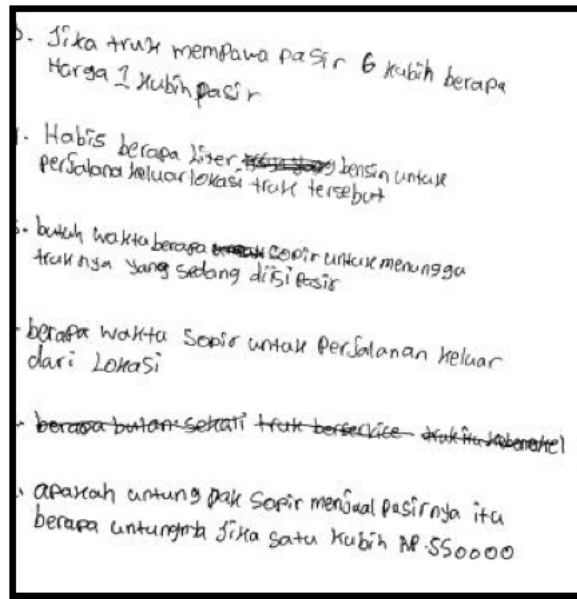 . Jika truk mempawa pasir 6 kubih berapa
Harga 1 kubih pasir
. Habis berapa Liter bensin untuk
perjalana keluar lokasi truk tersebut
. butuh waktu berapa sopir untuk menungga
truknya yang sedang diisi pasir
berapa waktu sopir untuk perjalanan keluar
dari Lokasi
berapa bulan sekali truk berservice truk itu kebengkel
. apakah untung pak sopir menjual pasirnya itu
berapa untungnya jika satu kubih Rp.550000